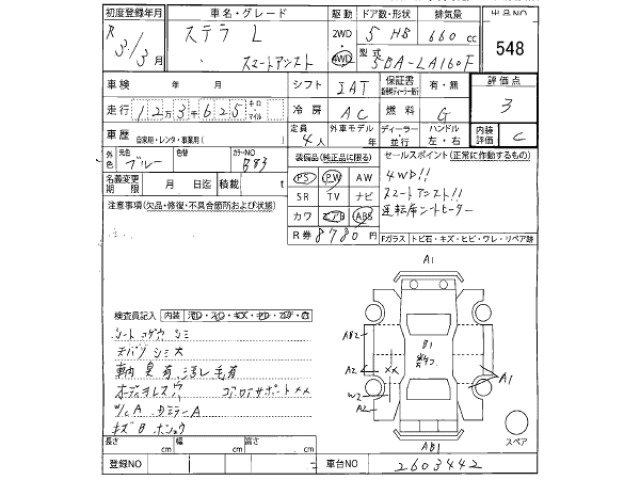 初度登録年月 車名・グレード 駆動 ドア数・形状 排気量 出品NO
R 3/3月 ステラ L 2WD 5 HB 660cc 548
スマートアシスト 4WD 型式 5BA-LA160F
車検 年 月 シフト IAT 保証書 有・無 評価点
走行 12万3千625 キロ・マイル 冷房 AC 燃料 G 3
車歴 自家用・レンタ・事業用( ) 定員 4人 外車モデル 年 ディーラー・並行 ハンドル 左・右 内装評価 C
外色 元色 ブルー 色替 カラーNO B83 装備品(純正品に限る) セールスポイント(正常に作動するもの)
名義変更期限 月 日迄 積載 t PS PW AW 4WD!!
SR TV ナビ スマートアシスト!!
注意事項(欠品・修復・不具合箇所および状態) カワ エアB ABS 運転席シートヒーター
R券 8780円 Fガラス トビ石・キズ・ヒビ・ワレ・リペア跡
A1
検査員記入 内装
シート コゲ穴 シミ
天バリ シミ大
車内 臭有 汚し毛有
オーディオレス穴 コアロアサポート××
W/C A DミラーA
キズ B
AB2
A2
××
W2
A2
B1
A1
AB1
スペア
長さ cm 幅 cm 高さ cm
登録NO 車台NO 2603442